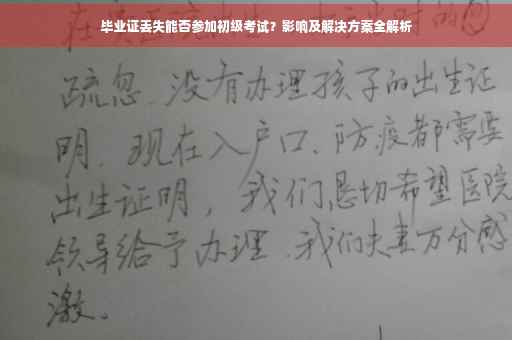 毕业证丢失能否参加初级考试？影响及解决方案全解析
疏忽.没有办理孩子的出生证
明.现在入户口、防疫都需要
出生证明，我们恳切希望医院
领导给予办理.我们夫妻万分感
激。